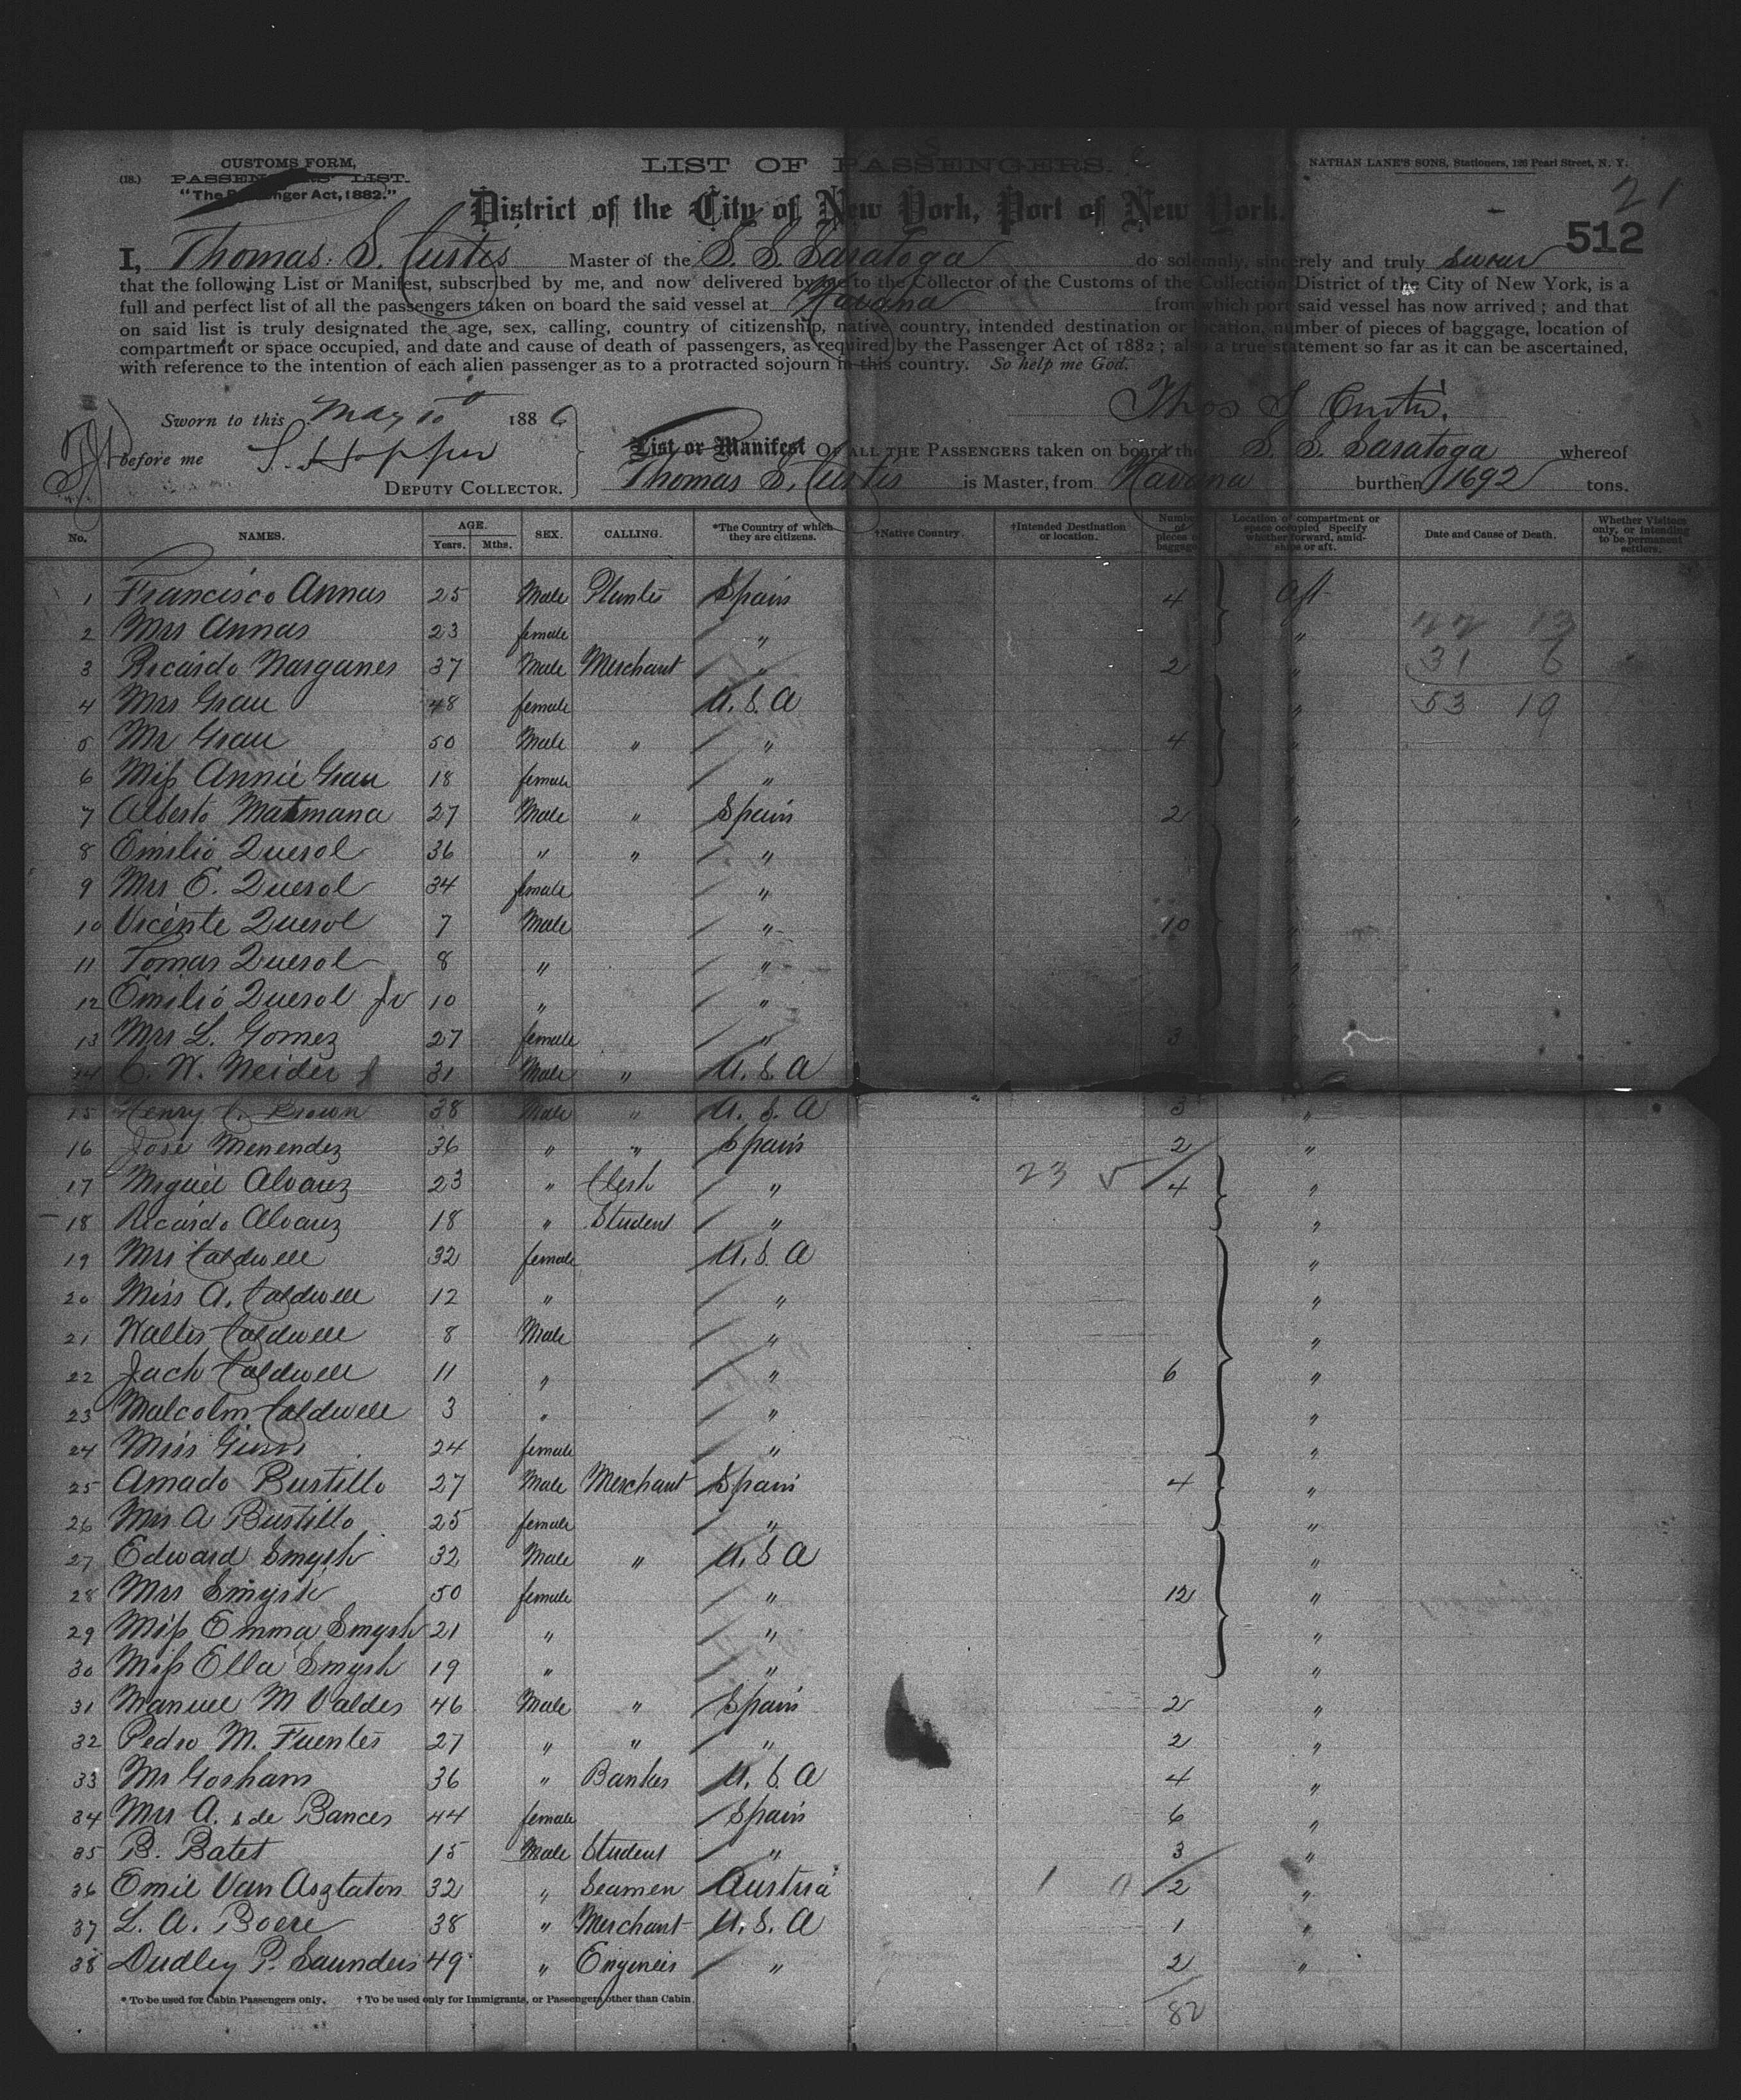 CUSTOMS FORM,
(18.) PASSENGERS' LIST.
"The Passenger Act, 1882."
LIST OF PASSENGERS.
NATHAN LANE'S SONS, Stationers, 126 Pearl Street, N. Y.
21
District of the City of New York, Port of New York.
512
I, Thomas S. Curtis Master of the S. S. Saratoga do solemnly, sincerely and truly swear
that the following List or Manifest, subscribed by me, and now delivered by me to the Collector of the Customs of the Collection District of the City of New York, is a
full and perfect list of all the passengers taken on board the said vessel at Havana from which port said vessel has now arrived; and that
on said list is truly designated the age, sex, calling, country of citizenship, native country, intended destination or location, number of pieces of baggage, location of
compartment or space occupied, and date and cause of death of passengers, as required by the Passenger Act of 1882; also a true statement so far as it can be ascertained,
with reference to the intention of each alien passenger as to a protracted sojourn in this country. So help me God.
Thos S Curtis.
Sworn to this May 10 1886
before me S. Hopper
DEPUTY COLLECTOR.
List or Manifest OF ALL THE PASSENGERS taken on board the S. S. Saratoga whereof
Thomas S. Curtis is Master, from Havana burthen 1692 tons.
No. NAMES. AGE. Years. Mths. SEX. CALLING. *The Country of which they are citizens. †Native Country. †Intended Destination or location. Number of pieces of baggage. Location of compartment or space occupied Specify whether forward, amidships or aft. Date and Cause of Death. Whether Visitors only, or intending to be permanent settlers.
1 Francisco Annas 25 Male Planter Spain 4 Aft
2 Mrs Annas 23 female " " 22 13
3 Ricardo Narganes 37 Male Merchant " 2 " 31 6
4 Mrs Grau 48 female U. S. A " 53 19
5 Mr Grau 50 Male " " 4 "
6 Miss Annie Grau 18 female " "
7 Alberto Matmana 27 Male " Spain 2 "
8 Emilio Querol 36 " " "
9 Mrs E. Querol 34 female "
10 Vicente Querol 7 Male " 10
11 Tomas Querol 8 " "
12 Emilio Querol Jr 10 " "
13 Mrs L. Gomez 27 female " 3
14 C. W. Neider 31 Male " U. S. A
15 Henry C. Brown 38 Male " U. S. A 3 "
16 Jose Menendez 36 " " Spain 2 "
17 Miguel Alvarez 23 " Clerk " 23 4 "
18 Ricardo Alvarez 18 " Student " "
19 Mrs Caldwell 32 female U. S. A "
20 Miss A. Caldwell 12 " " "
21 Walter Caldwell 8 Male " "
22 Jack Caldwell 11 " " 6 "
23 Malcolm Caldwell 3 " " "
24 Miss 24 female " "
25 Amado Bustillo 27 Male Merchant Spain 4 "
26 Mrs A Bustillo 25 female " "
27 Edward Smysh 32 Male " U. S A "
28 Mrs Smysh 50 female " 12 "
29 Miss Emma Smysh 21 " " "
30 Miss Ella Smysh 19 " " "
31 Manuel M Valdes 46 Male " Spain 2 "
32 Pedro M. Fuentes 27 " " " 2 "
33 Mr Gorham 36 " Banker U. S. A 4 "
34 Mrs A. de Bances 44 female Spain 6 "
35 B. Batet 15 Male Student " 3 "
36 Emil Van Asztaton 32 " Seamen Austria 1 2 "
37 L. A. Boere 38 " Merchant U. S. A 1 "
38 Dudley P. Saunders 49 " Engineer " 2 "
* To be used for Cabin Passengers only. † To be used only for Immigrants, or Passengers other than Cabin.
82